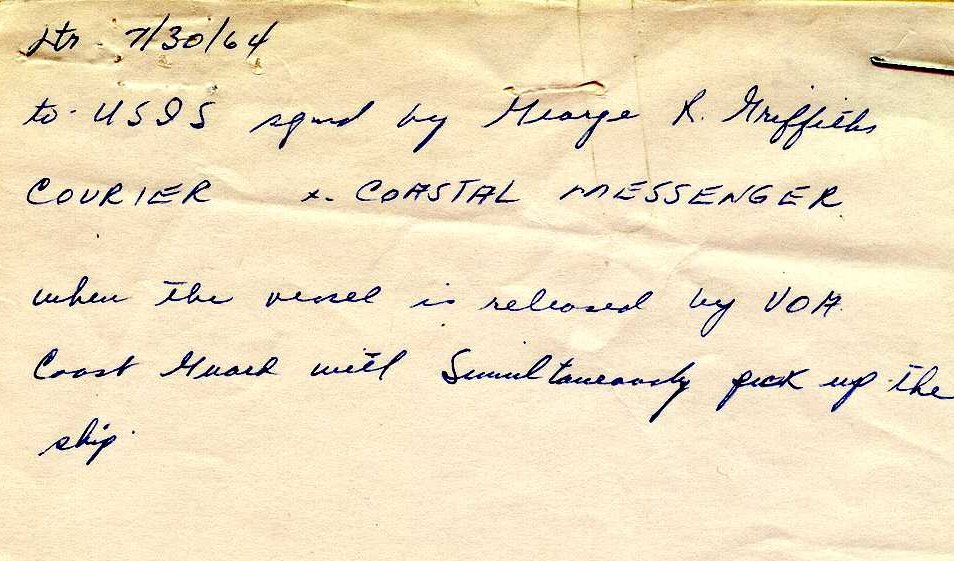 Ltr. 7/30/64
to USIS sgnd by George R. Griffiths
COURIER x. COASTAL MESSENGER
when the vessel is released by VOA.
Coast Guard will Simultaneously pick up the
ship.